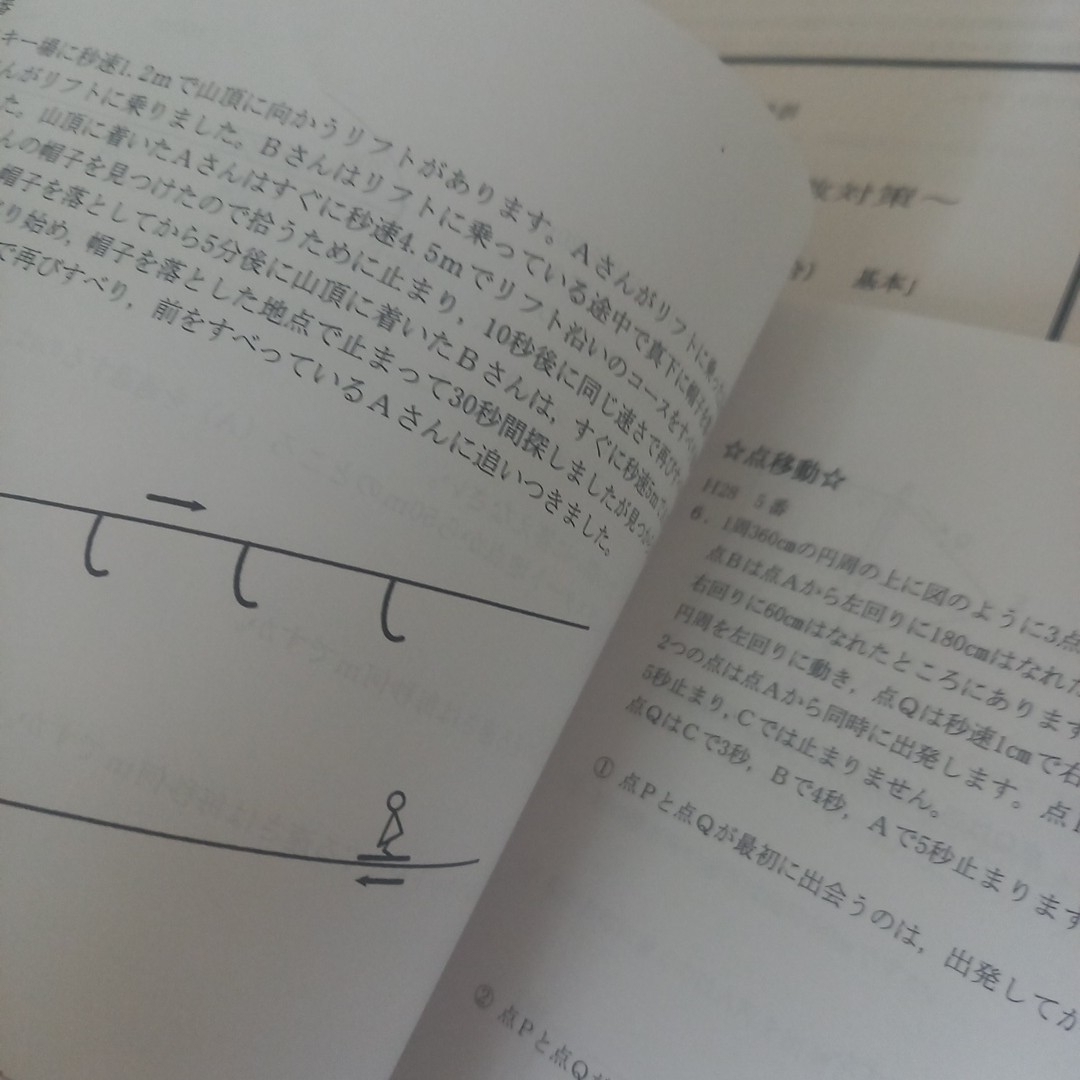 キー場に秒速1.2mで山頂に向かうリフトがあります。Aさんがリフトに乗った
んがリフトに乗りました。Bさんはリフトに乗っている途中で真下に帽子を
た。山頂に着いたAさんはすぐに秒速4.5mでリフト沿いのコースをすべ
んの帽子を見つけたので拾うために止まり，10秒後に同じ速さで再び
帽子を落としてから5分後に山頂に着いたBさんは，すぐに秒速5mで
り始め，帽子を落とした地点で止まって30秒間探しましたが見つ
で再びすべり，前をすべっているAさんに追いつきました。
対策～
基本」
☆点移動☆
H28 5番
6．1周360cmの円周の上に図のように3点
点Bは点Aから左回りに180cmはなれた
右回りに60cmはなれたところにあります
円周を左回りに動き，点Qは秒速1cmで右
2つの点は点Aから同時に出発します。点
5秒止まり，Cでは止まりません。
点QはCで3秒，Bで4秒，Aで5秒止まります
① 点Pと点Qが最初に出会うのは，出発してか
② 点Pと点Q